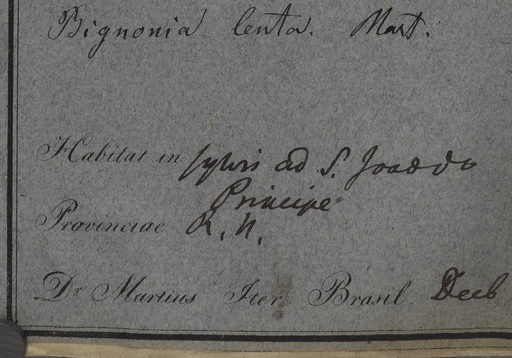 Bignonia lenta. Mart.
Habitat in sylvis ad S. Joao do
Principe
Provinciae R. N.
Dr Martius Iter Brasil. Decb